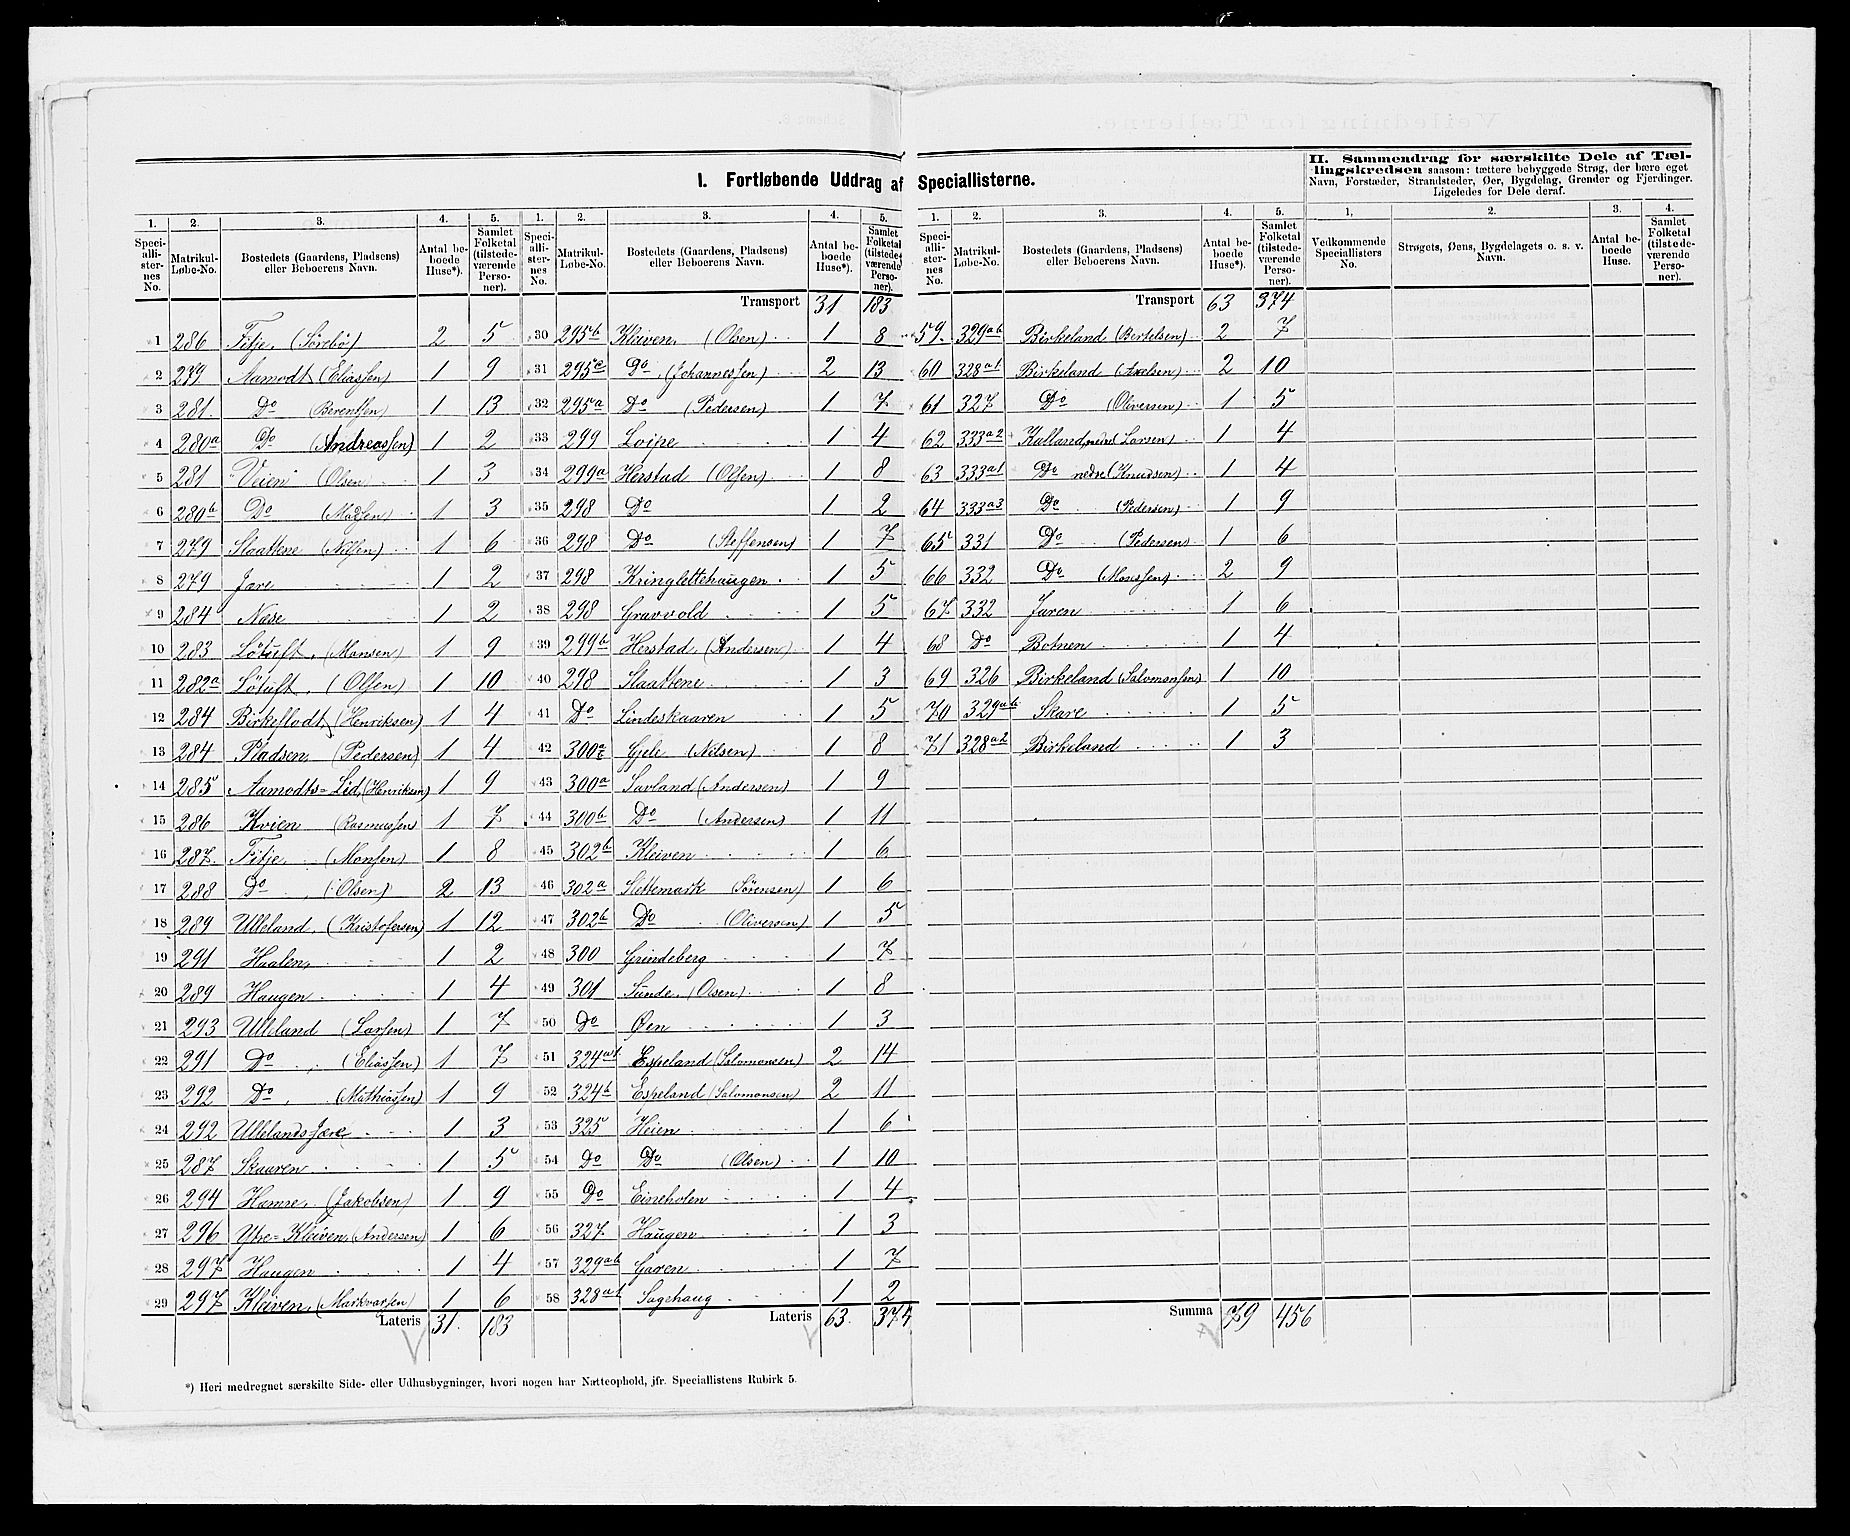 I. Fortløbende Uddrag af Speciallisterne.
II. Sammendrag for særskilte Dele af Tæl-
lingskredsen saasom: tættere bebyggede Strøg, der bære eget
Navn, Forstæder, Strandsteder, Øer, Bygdelag, Grender og Fjerdinger.
Ligeledes for Dele deraf.
1. 2. 3. 4. 5. 1. 2. 3. 4. 5. 1. 2. 3. 4. 5. 1. 2. 3. 4.
Speci-alli-ster-nes No. Matrikul-Løbe-No. Bostedets (Gaardens, Pladsens) eller Beboerens Navn. Antal be-boede Huse*). Samlet Folketal (tilstede-værende Perso-ner).
Speci-alli-ster-nes No. Matrikul-Løbe-No. Bostedets (Gaardens, Pladsens) eller Beboerens Navn. Antal be-boede Huse*). Samlet Folketal (tilstede-værende Perso-ner).
Speci-alli-ster-nes No. Matrikul-Løbe-No. Bostedets (Gaardens, Pladsens) eller Beboerens Navn. Antal be-boede Huse*). Samlet Folketal (tilstede-værende Perso-ner).
Vedkommende Speciallisters No. Strøgets, Øens, Bygdelagets o. s. v. Navn. Antal be-boede Huse. Samlet Folketal (tilstede-værende Perso-ner).
1 286 Fitje, (Sörebö) 2 5
2 279 Aamodt (Eliassen) 1 9
3 281. Do (Berentsen) 1 13
4 280a Do (Andreassen) 1 2
5 281 Veien (Olsen) 1 3
6 280b Do (Madsen) 1 3
7 279 Slaattene (Nilsen) 1 6
8 279 Jare 1 2
9 284 Nase 1 2
10 283 Lötuft, (Monsen) 1 9
11 282a Lötuft, (Olsen) 1 10
12 284 Birkeflodt, (Henriksen) 1 4
13 284 Pladsen (Pedersen) 1 4
14 285 Aamodts=Lid, (Henriksen) 1 9
15 286 Kvien (Rasmussen) 1 7
16 287. Fitje, (Monsen) 1 8
17 288 Do, (Olsen) 2 13
18 289 Ulleland, (Kristofersen) 1 12
19 291 Haalen, 1 2
20 289 Haugen 1 4
21 293 Ulleland (Larsen) 1 7
22 291 Do, (Eliassen) 1 7
23 292 Do, (Mathiassen) 1 9
24 292 Ullelands Jare 1 3
25 287 Skaaren 1 5
26 294 Hamre, (Jakobsen) 1 9
27 296 Ytre=Kleiven, (Andersen) 1 6
28 297 Haugen 1 4
29 297 Kleiven, (Markvarsen) 1 6
Lateris 31. 183
Transport 31 183
30 295b Kleiven, (Olsen) 1 8
31 295c Do, (Johannessen) 2 13
32 295a Do (Pedersen) 1 7
33 299 Loipe 1 4
34 299a Herstad (Olsen) 1 8
35 298 Do 1 2
36 298 Do (Steffensen) 1 7
37 298 Kringlettehaugen 1 5
38 298 Gravvold 1 5
39 299b Herstad, (Andersen) 1 4
40 298 Slaattene 1 3
41 Do Lindeskaaren 1 5
42 300 Gjele (Nilsen) 1 8
43 300a Savland (Andersen) 1 9
44 300b Do (Andersen) 1 11
45 302b Kleiven 1 6
46 302a Slettemark (Sörensen) 1 6
47 302b Do (Oliversen) 1 5
48 300 Grindeberg 1 7
49 301 Sunde, (Olsen) 1 8
50 Do Øen 1 3
51 324a1 Espeland (Salomonsen) 2 14
52 324b Espeland (Salomonsen) 2 11
53 325 Heien 1 6
54 Do Do (Olsen) 1 10
55 Do Eineholen 1 4
56 327. Haugen 1 3
57 329ab Garen 1 7
58 328a1 Sagehaug 1 2
Lateris 63. 374
Transport 63 374
59. 329ab Birkeland (Bertelsen) 2 7
60 328a1 Birkeland (Axelsen) 2 10
61 327. Do (Oliversen) 1 5
62 333a2 Kalland, nedre Larsen) 1 4
63 333a1 Do nedre (Knudsen) 1 4
64 333a3 Do (Pedersen) 1 9
65 331 Do (Pedersen) 1 6
66 332 Do (Monssen) 2 9
67. 332 Jaren 1 6
68 Do Botnen 1 4
69 326 Birkeland (Salomonsen) 1 10
70 329ab Skare 1 5
71 328a2 Birkeland 1 3
Summa 79 456
*) Heri medregnet særskilte Side- eller Udhusbygninger, hvori nogen har Natteophold, jfr. Speciallistens Rubirk 5.